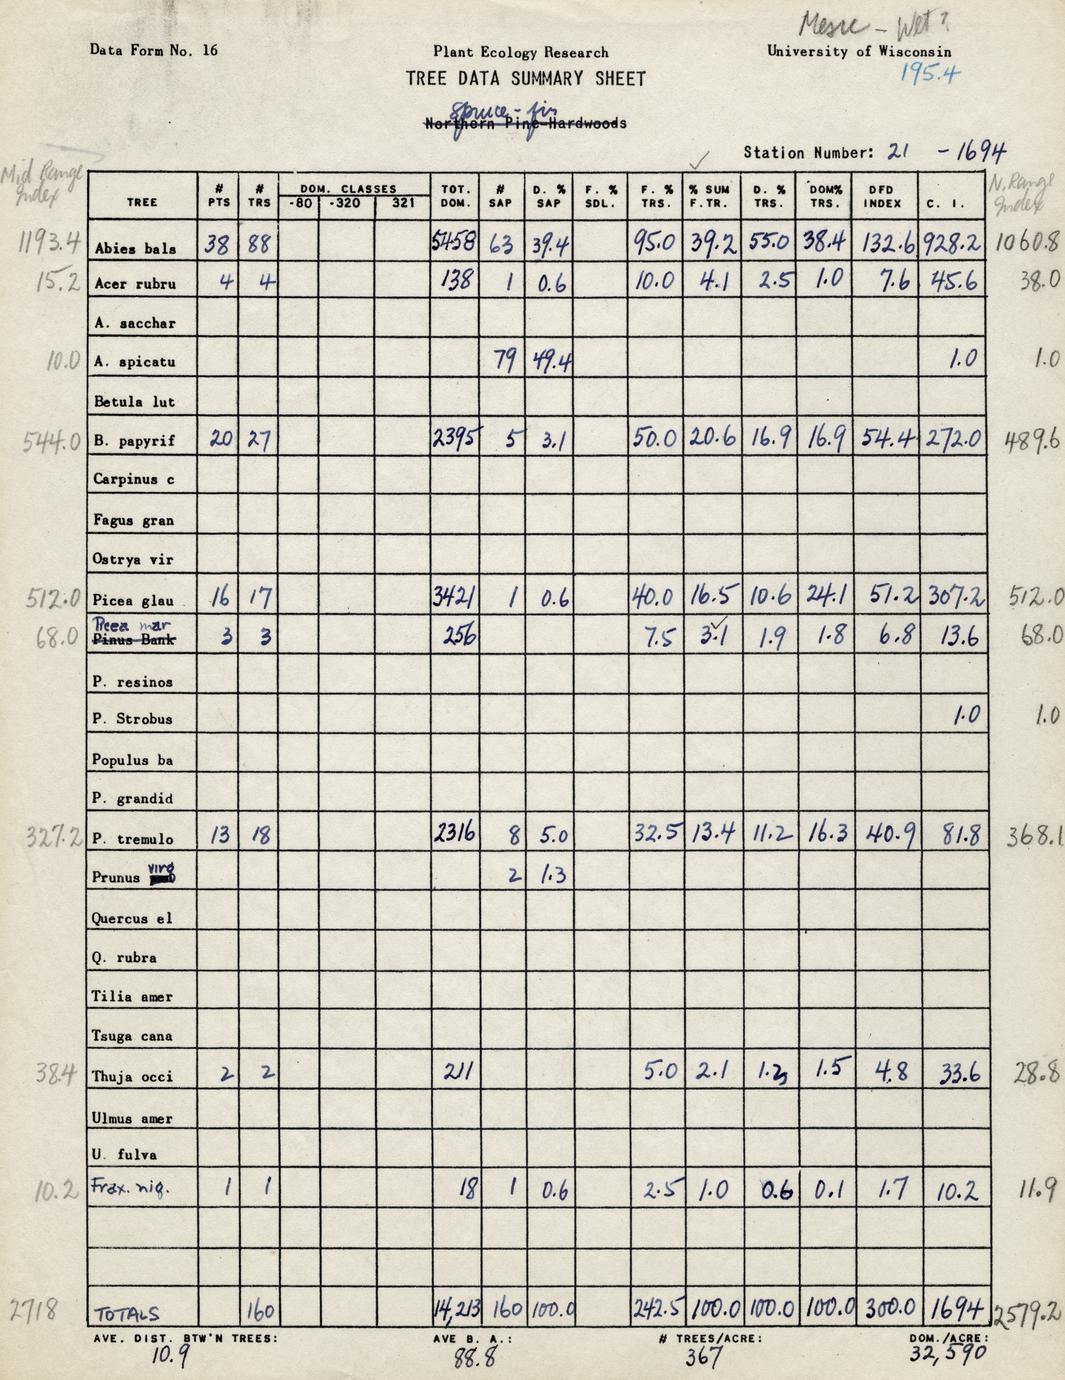 Mesic - Wet?
Data Form No. 16 Plant Ecology Research University of Wisconsin
195.4
TREE DATA SUMMARY SHEET
Spruce-fir
Northern Pine-Hardwoods
Station Number: 21 - 1694
Mid Range Index TREE # PTS # TRS DOM. CLASSES -80 -320 321 TOT. DOM. # SAP D. % SAP F. % SDL. F. % TRS. % SUM F.TR. D. % TRS. DOM% TRS. DFD INDEX C. I. N. Range Index
1193.4 Abies bals 38 88 5458 63 39.4 95.0 39.2 55.0 38.4 132.6 928.2 1060.8
15.2 Acer rubru 4 4 138 1 0.6 10.0 4.1 2.5 1.0 7.6 45.6 38.0
A. sacchar
10.0 A. spicatu 79 49.4 1.0 1.0
Betula lut
544.0 B. papyrif 20 27 2395 5 3.1 50.0 20.6 16.9 16.9 54.4 272.0 489.6
Carpinus c
Fagus gran
Ostrya vir
512.0 Picea glau 16 17 3421 1 0.6 40.0 16.5 10.6 24.1 51.2 307.2 512.0
Picea mar
68.0 Pinus Bank 3 3 256 7.5 3.1 1.9 1.8 6.8 13.6 68.0
P. resinos
P. Strobus 1.0 1.0
Populus ba
P. grandid
327.2 P. tremulo 13 18 2316 8 5.0 32.5 13.4 11.2 16.3 40.9 81.8 368.1
Prunus virg 2 1.3
Quercus el
Q. rubra
Tilia amer
Tsuga cana
38.4 Thuja occi 2 2 211 5.0 2.1 1.3 1.5 4.8 33.6 28.8
Ulmus amer
U. fulva
10.2 Frax. nig. 1 1 18 1 0.6 2.5 1.0 0.6 0.1 1.7 10.2 11.9
2718 TOTALS 160 14,213 160 100.0 242.5 100.0 100.0 100.0 300.0 1694 2579.2
AVE. DIST. BTW'N TREES: AVE B. A.: # TREES/ACRE: DOM./ACRE:
10.9 88.8 367 32,590